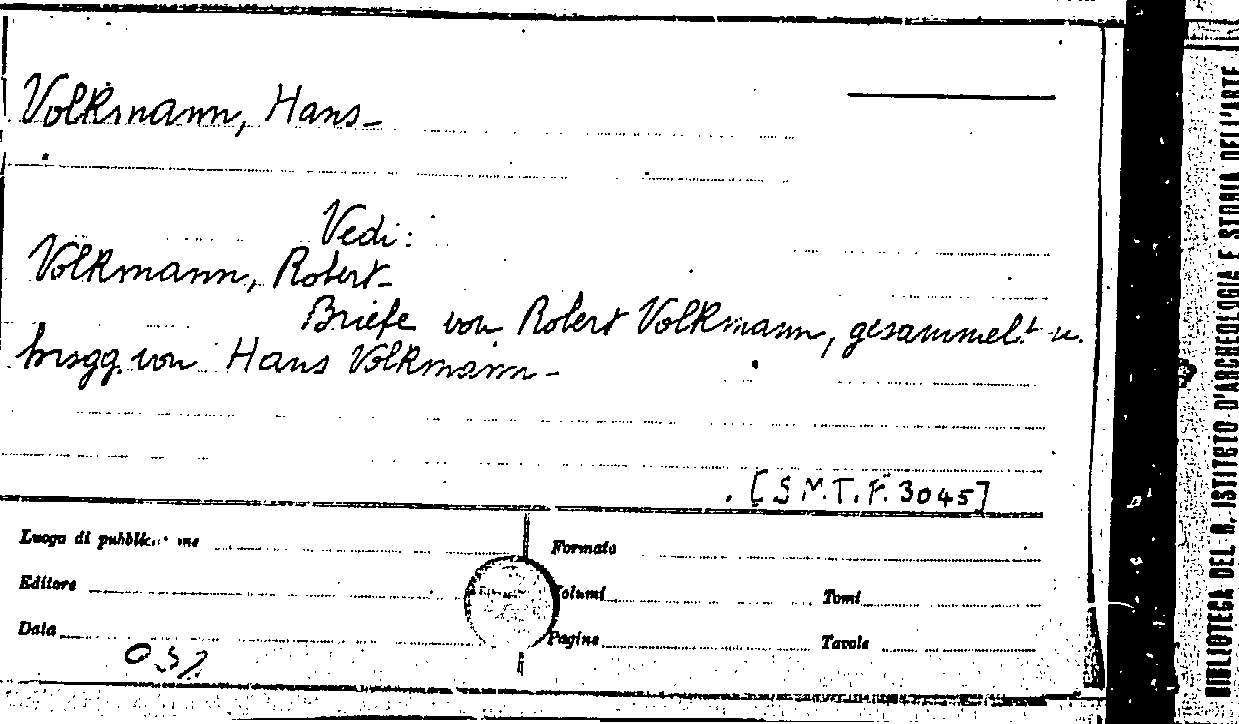 Volkmann, Hans-
Vedi:
Volkmann, Robert-
Briefe von Robert Volkmann, gesammelt u.
hrsgg. von Hans Volkmann-
[S.M.T.F. 3045]
Luogo di
Formato
Editore
Volumi
Tomi
Data
Pagine
Tavole
BIBLIOTECA DEL R. ISTITUTO D'ARCHEOLOGIA E STORIA DELL'ARTE